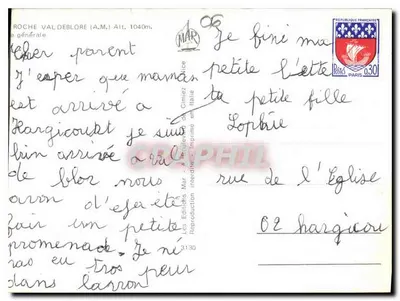 ROCHE VALDEBLORE (A.M.) Alt. 1040m.
générale
Cher parent
J'esper que maman
est arrivé a
Hargicourt je suis
bien arrivée a val
de blor nous
avon déja été
fair un petite
promenade. Je né
pas eu tros peur
dans lavron
MAR
Les Editions Mar
Reproduction interdite
Imprimé en Italie
3130
Je fini ma
petite lette
ta petite fille
Sophie
rue de l'Eglise
02 hargicou
REPUBLIQUE FRANÇAISE
POSTES
0,30
PARIS
CPHIL